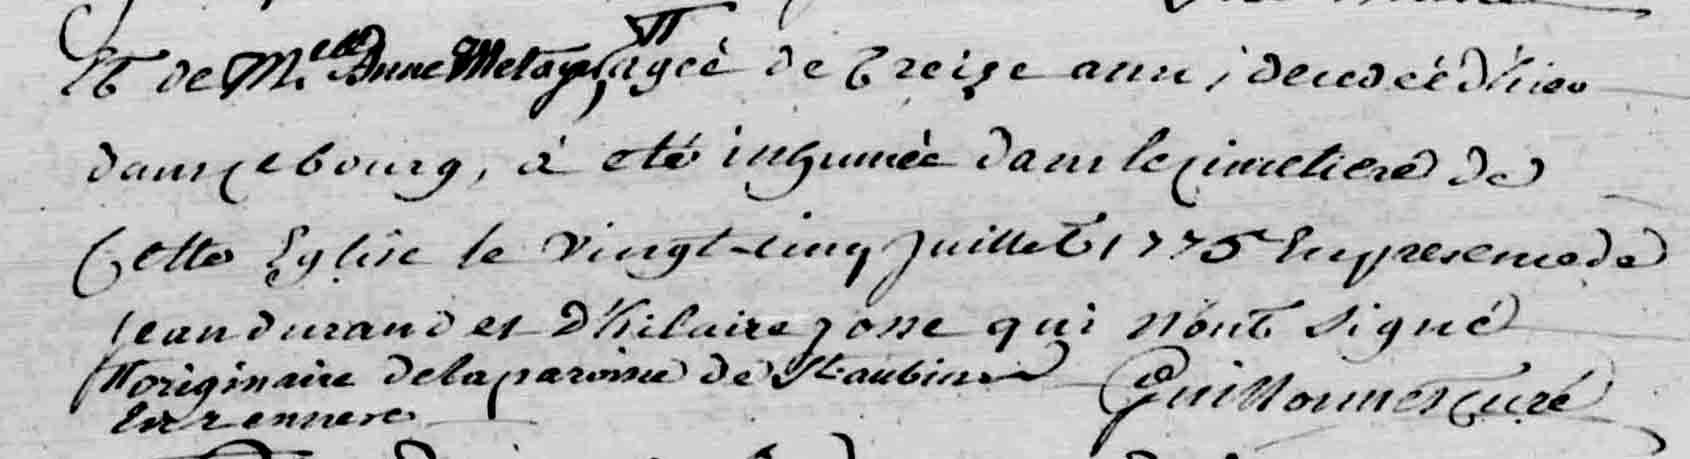 Et de Melle Anne Metayer # agée de treize ans, decedée d'hier
dans ce bourg, à eté inhumée dans le cimetiere de
Cette Eglise le vingt-cinq juillet 1775 En presence de
jean durand et D'hilaire josse qui n'ont signé
# originaire de la paroisse de St aubin Guillonnet Curé